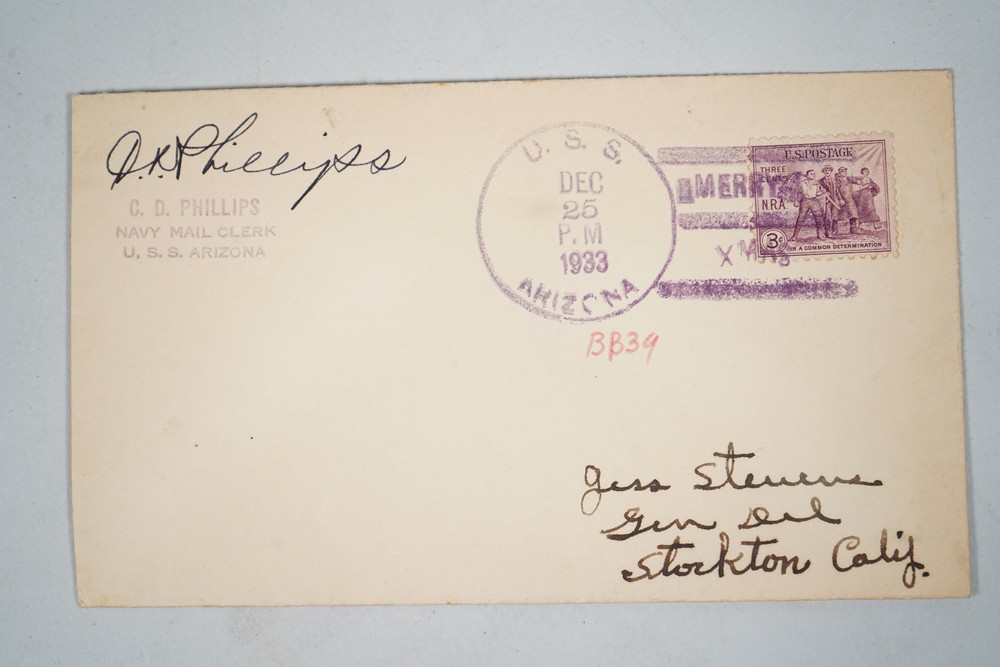 C. D. Phillips
C. D. PHILLIPS
NAVY MAIL CLERK
U. S. S. ARIZONA
U. S. S.
DEC
25
P. M
1933
ARIZONA
MERRY
XMAS
U.S. POSTAGE
THREE
CENTS
N.R.A.
3¢
IN A COMMON DETERMINATION
BB39
Jess Stevens
Gen Del
Stockton Calif.